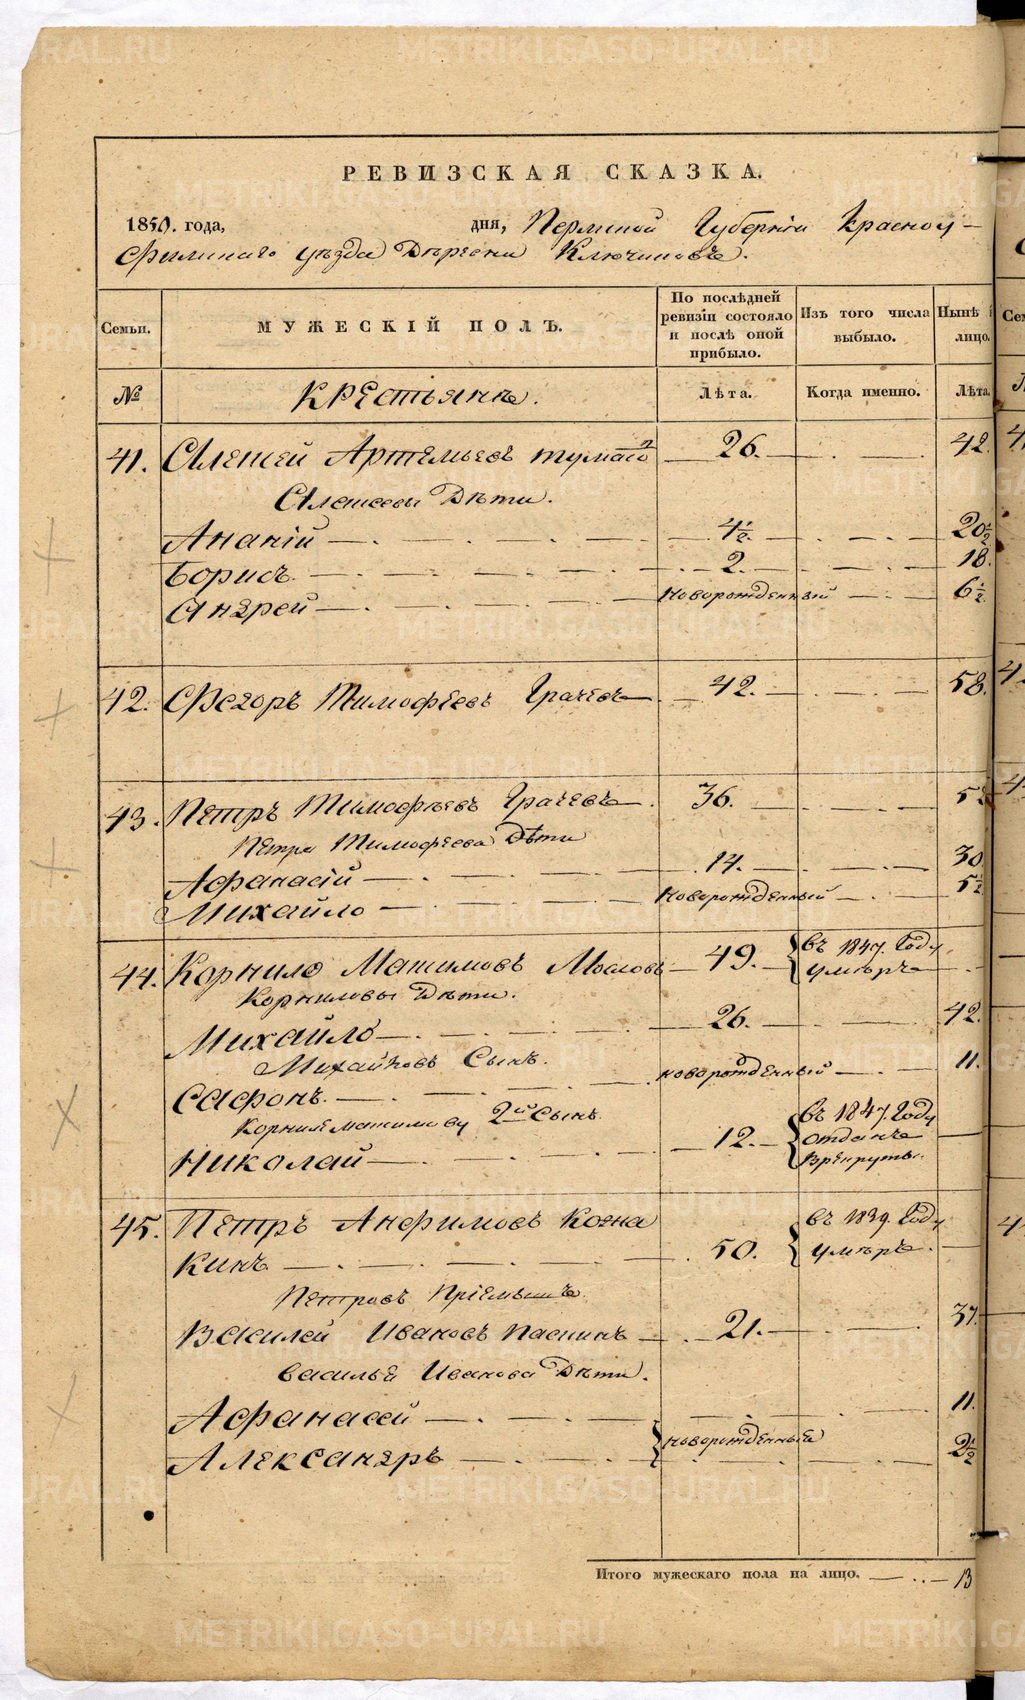 РЕВИЗСКАЯ СКАЗКА.
1850. года, дня, Пермской Губерніи Красноу-
фимскаго уѣзда Деревни Ключиковъ.
Семьи. МУЖЕСКІЙ ПОЛЪ. По послѣдней ревизіи состояло и послѣ оной прибыло. Изъ того числа выбыло. Нынѣ лицо.
№ Крестьяне. Лѣта. Когда именно. Лѣта.
41. Алексей Артемьевъ 26. 42.
Алексеевы Дѣти.
Ананій 4½. 20½
Борисъ. 2. 18.
Андрей новорожденный 6½
42. Федоръ Тимофеевъ Грачевъ 42. 58.
43. Петръ Тимофѣевъ Грачевъ 36.
Петра Тимофеева Дѣти
Афанасій 14. 30
Михайло новорожденный 5½
44. Корнило Макимовъ Мосовъ 49. въ 1847. Году
умѣръ
Корниловы Дѣти.
Михайло 26. 42.
Михайловъ Сынъ.
Сафонъ. новорожденный 11.
2й Сынъ
Николай 12. въ 1847. Году
отданъ
врекруты.
45. Петръ Анфимовъ Кожа
кинъ 50. въ 1839. Году
умѣръ.
Петровъ Пріемышъ
Василей Ивановъ Паскинъ 21. 37.
Василья Иванова Дѣти.
Афанасей 11.
Александръ новорожденныя 2½
Итого мужескаго пола на лицо. 13
METRIKI.GASO-URAL.RU